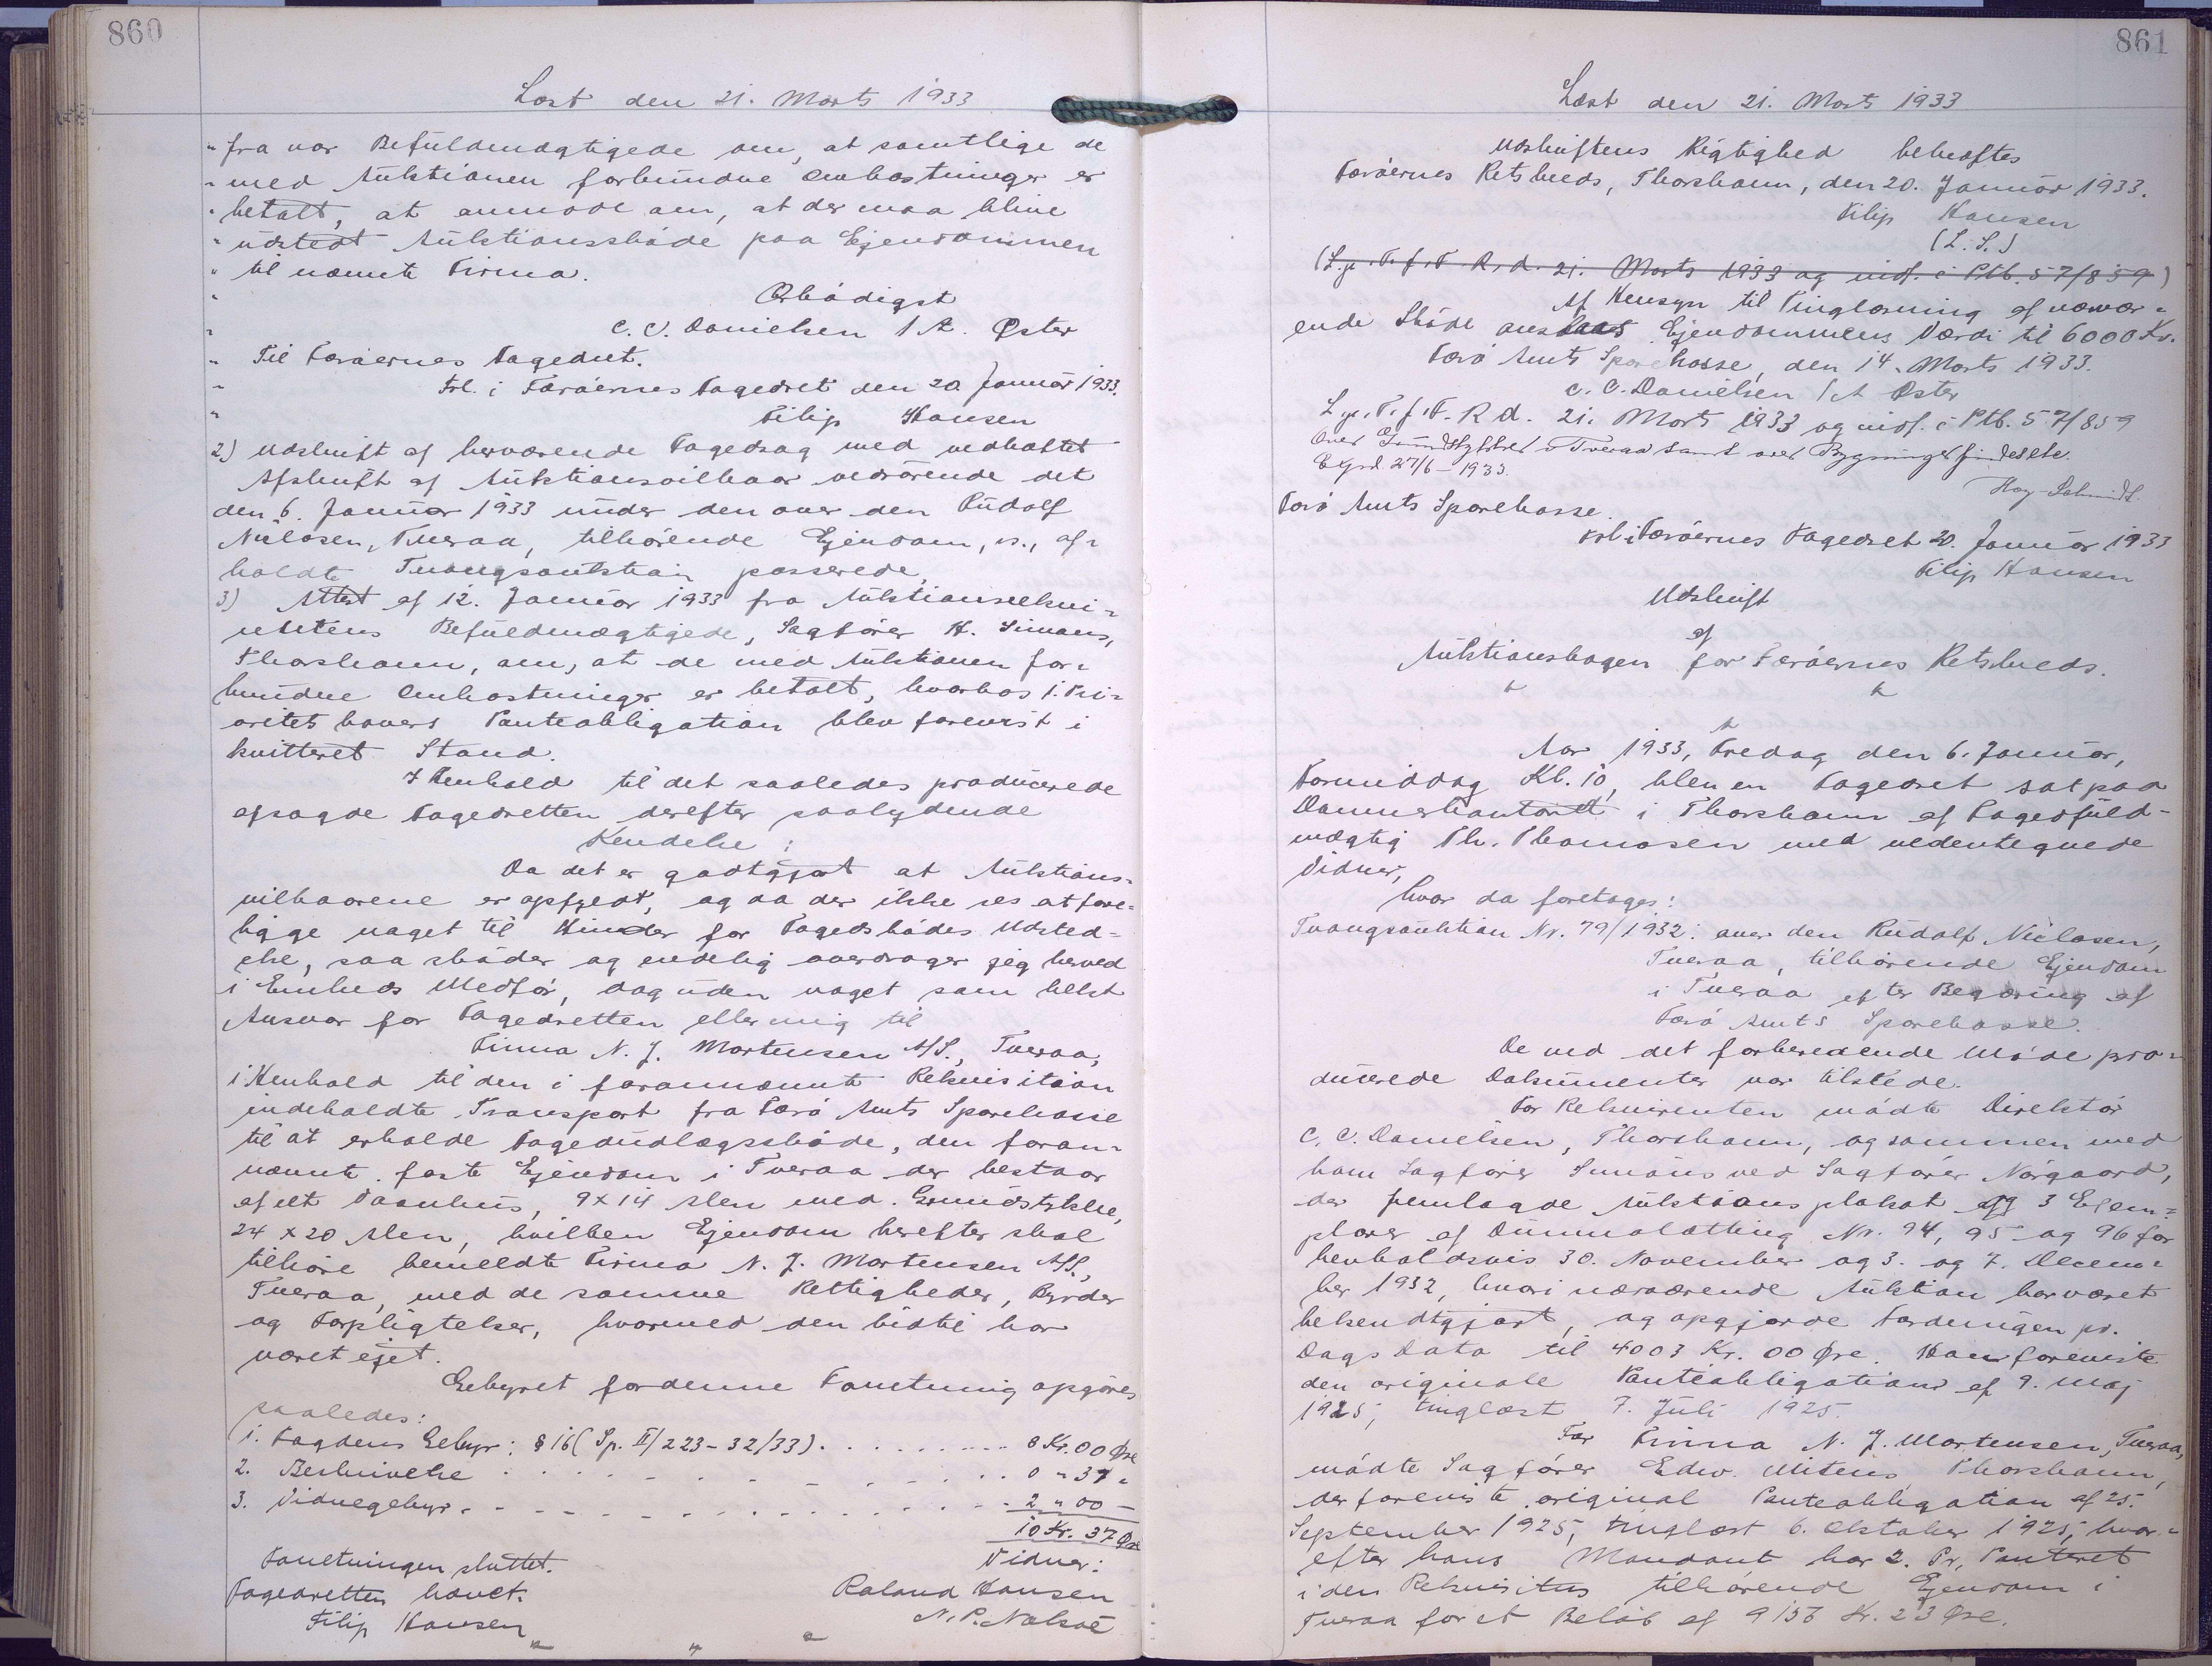 860
Læst den 21. Marts 1933
" fra vor Befuldmægtigede om, at samtlige de
" med Auktionen forbundne Omkostninger er
" betalt, at anmode om, at der maa blive
" udstedt Auktionsskøde paa Ejendommen
" til nævnte Firma.
" Ærbødigst
" C. C. Danielsen / A. Øster
" Til Færøernes Fogedret.
" Frl. i Færøernes Fogedret den 20. Januar 1933.
" Filip Hansen
2) Udskrift af herværende Fogedsag med vedhæftet
Afskrift af Auktionsvilkaar vedrørende det
den 6. Januar 1933 under den over den Rudolf
Niclasen, Tveraa, tilhørende Ejendom, s., af-
holdte Tvangsauktion passerede,
3) Attest af 12. Januar 1933 fra Auktionsrekvi-
rentens Befuldmægtigede, Sagfører H. Simonsen,
Thorshavn, om, at de med Auktionen for-
bundne Omkostninger er betalt, hvorhos 1. Pri-
oritets havers Panteobligation blev forevist i
kvitteret Stand.
I Henhold til det saaledes producerede
afsagde Fogedretten derefter saalydende
Kendelse:
Da det er godtgjort at Auktions-
vilkaarene er opfyldt, og da der ikke ses at fore-
ligge noget til Hinder for Fogedskødes Udsted-
else, saa skøder og endelig overdrager jeg herved
i Embeds Medfør, dog uden noget som helst
Ansvar for Fogedretten eller mig til
Firma N. J. Mortensen A/S., Tveraa,
i Henhold til den i forannævnte Rekvisition
indeholdte Transport fra Færø Amts Sparekasse
til at erholde Fogedudlægsskøde, den foran-
nævnte faste Ejendom i Tveraa der bestaar
af et Vaanhus, 9 x 14 Alen med Grundstykke,
24 x 20 Alen, hvilken Ejendom herefter skal
tilhøre bemeldte Firma N. J. Mortensen A/S.,
Tveraa, med de samme Rettigheder, Byrder
og Forpligtelser, hvormed den hidtil har
været ejet.
Gebyret for denne Forretning opgøres
saaledes:
1. Fogdens Gebyr: § 16 (Sp. II/223-32/33) . . . . . . . . 8 Kr. 00 Øre
2. Beskrivelse . . . . . . . . 0 " 37 "
3. Vidnegebyr . . . . . . . . 2 " 00 -
10 Kr. 37 Øre
Forretningen sluttet. Vidner:
Fogedretten hævet. Roland Hansen
Filip Hansen N. P. Nolsøe
861
Læst den 21. Marts 1933
Udskriftens Rigtighed bekræftes
Færøernes Retskreds, Thorshavn, den 20. Januar 1933.
Filip Hansen
(L. S.)
(L. p. T. f. F. R. d. 21. Marts 1933 og indf. i Ptb. 57/859)
Af Hensyn til Tinglæsning af nærvær-
ende Skøde anslaas Ejendommens Værdi til 6000 Kr.
Færø Amts Sparekasse, den 14. Marts 1933.
C. C. Danielsen / A Øster
L. p. T. f. F. R d. 21. Marts 1933 og indf. i Ptb. 57/859
Over Grundstykket i Tveraa samt over Bygninger findes etc.
Expd. 27/6 - 1933.
Hay-Schmidt
Færø Amts Sparekasse.
Frl. i Færøernes Fogedret 20. Januar 1933
Filip Hansen
Udskrift
af
Auktionsbogen for Færøernes Retskreds.
Aar 1933, Fredag den 6. Januar,
Formiddag Kl. 10, blev en Fogedret sat paa
Dommerkontoret i Thorshavn af Fogedfuld-
mægtig Th. Thomasen med nedentegnede
Vidner,
hvor da foretoges:
Tvangsauktion Nr. 79/1932: over den Rudolf Niclasen,
Tveraa, tilhørende Ejendom
i Tveraa efter Begæring af
Færø Amts Sparekasse.
De ved det forberedende Møde pro-
ducerede Dokumenter var tilstede.
For Rekvirenten mødte Direktør
C. C. Danielsen, Thorshavn, og sammen med
ham Sagfører Simonsen ved Sagfører Nørgaard,
der fremlagde Auktionsplakat og 3 Eksem-
plarer af Dimmalætting Nr. 94, 95 og 96 for
henholdsvis 30. November og 3. og 7. Decem-
ber 1932, hvori nærværende Auktion har været
bekendtgjort, og opgjorde Fordringen pr.
Dags Dato til 4003 Kr. 00 Øre. Han foreviste
den originale Panteobligation af 9. Maj
1925, tinglæst 7. Juli 1925.
For Firma N. J. Mortensen, Tveraa,
mødte Sagfører Edw. Mitens, Thorshavn,
der foreviste original Panteobligation af 25.
September 1925, tinglæst 6. Oktober 1925, hvor-
efter hans Mandant har 2. Pr. Panteret
i den Rekvisitus tilhørende Ejendom i
Tveraa for et Beløb af 9156 Kr. 23 Øre.